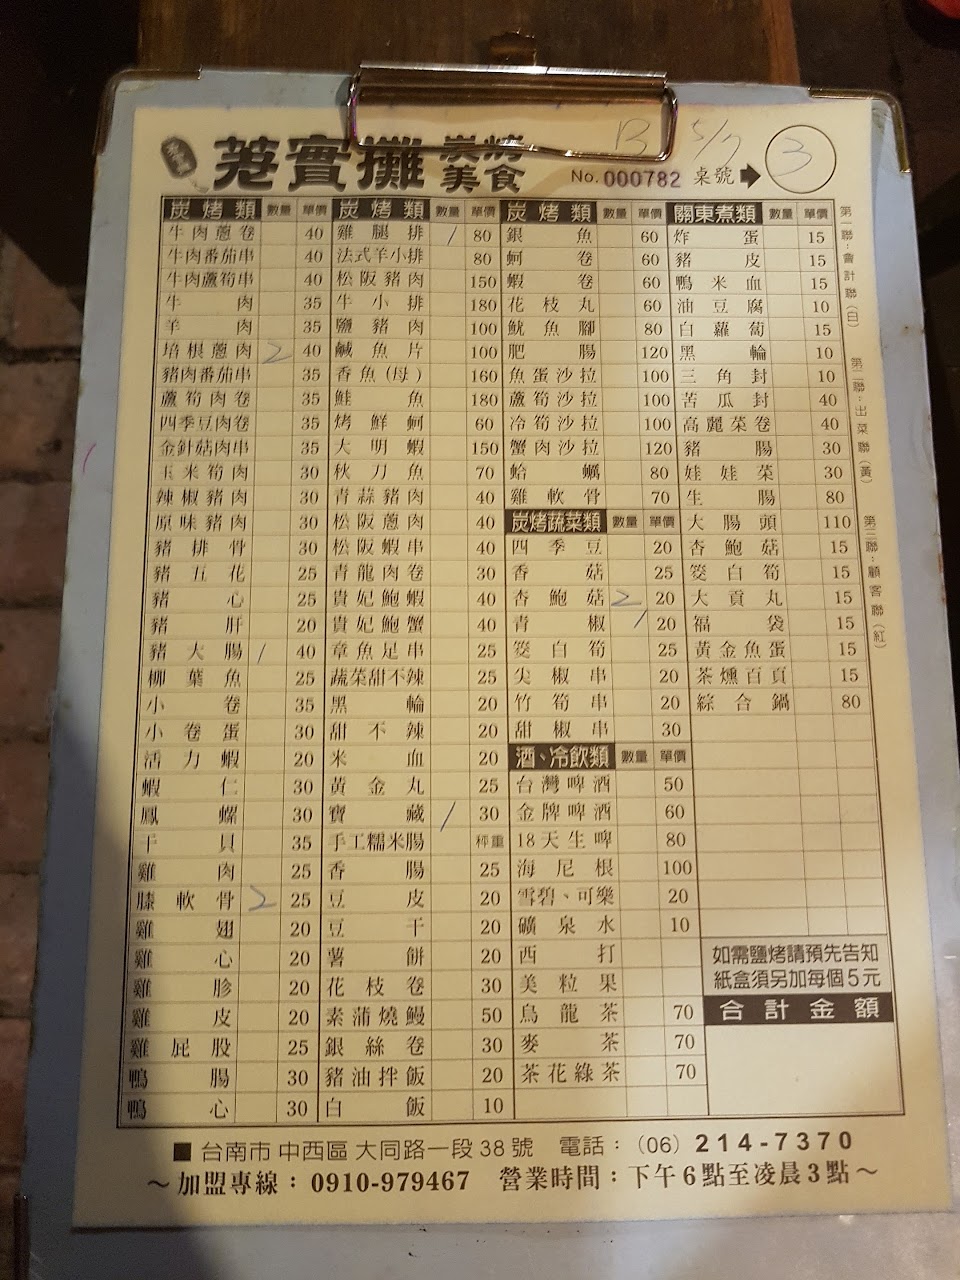 荖實攤 炭烤美食
B 5/7
No. 000782 桌號 3
炭烤類 數量 單價
牛肉蔥卷 40
牛肉番茄串 40
牛肉蘆筍串 40
牛肉 35
羊肉 35
培根蔥肉 2 40
豬肉番茄串 35
蘆筍肉卷 35
四季豆肉卷 35
金針菇肉串 35
玉米筍肉 30
辣椒豬肉 30
原味豬肉 30
豬排骨 30
豬五花 25
豬心 25
豬肝 20
豬大腸 / 40
柳葉魚 25
小卷 35
小卷蛋 30
活力蝦 20
蝦仁 30
鳳螺 30
干貝 35
雞肉 25
膝軟骨 2 25
雞翅 20
雞心 20
雞胗 20
雞皮 20
雞屁股 25
鴨腸 30
鴨心 30
炭烤類 數量 單價
雞腿排 / 80
法式羊小排 80
松阪豬肉 150
牛小排 180
鹽豬肉 100
鹹魚片 100
香魚(母) 160
鮭魚 180
烤鮮蚵 60
大明蝦 150
秋刀魚 70
青蒜豬肉 40
松阪蔥肉 40
松阪蝦串 40
青龍肉卷 30
貴妃鮑蝦 40
貴妃鮑蟹 40
章魚足串 25
蔬菜甜不辣 25
黑輪 20
甜不辣 20
米血 20
黃金丸 25
寶藏 / 30
手工糯米腸 秤重
香腸 25
豆皮 20
豆干 20
薯餅 20
花枝卷 30
素蒲燒鰻 50
銀絲卷 30
豬油拌飯 20
白飯 10
炭烤類 數量 單價
銀魚 60
蚵卷 60
蝦卷 60
花枝丸 60
魷魚腳 80
肥腸 120
魚蛋沙拉 100
蘆筍沙拉 100
冷筍沙拉 100
蟹肉沙拉 120
蛤蠣 80
雞軟骨 70
炭烤蔬菜類 數量 單價
四季豆 20
香菇 25
杏鮑菇 2 20
青椒 / 20
筊白筍 25
尖椒串 20
竹筍串 20
甜椒串 30
酒、冷飲類 數量 單價
台灣啤酒 50
金牌啤酒 60
18天生啤 80
海尼根 100
雪碧、可樂 20
礦泉水 10
西打
美粒果
烏龍茶 70
麥茶 70
茶花綠茶 70
關東煮類 數量 單價
炸蛋 15
豬皮 15
鴨米血 15
油豆腐 10
白蘿蔔 15
黑輪 10
三角封 10
苦瓜封 40
高麗菜卷 40
豬腸 30
娃娃菜 30
生腸 80
大腸頭 110
杏鮑菇 15
筊白筍 15
大貢丸 15
福袋 15
黃金魚蛋 15
茶燻百頁 15
綜合鍋 80
如需鹽烤請預先告知
紙盒須另加每個5元
合計金額
第一聯：會計聯(白)
第二聯：出菜聯(黃)
第三聯：顧客聯(紅)
■ 台南市中西區大同路一段38號 電話：(06) 214-7370
～加盟專線：0910-979467 營業時間：下午6點至凌晨3點～